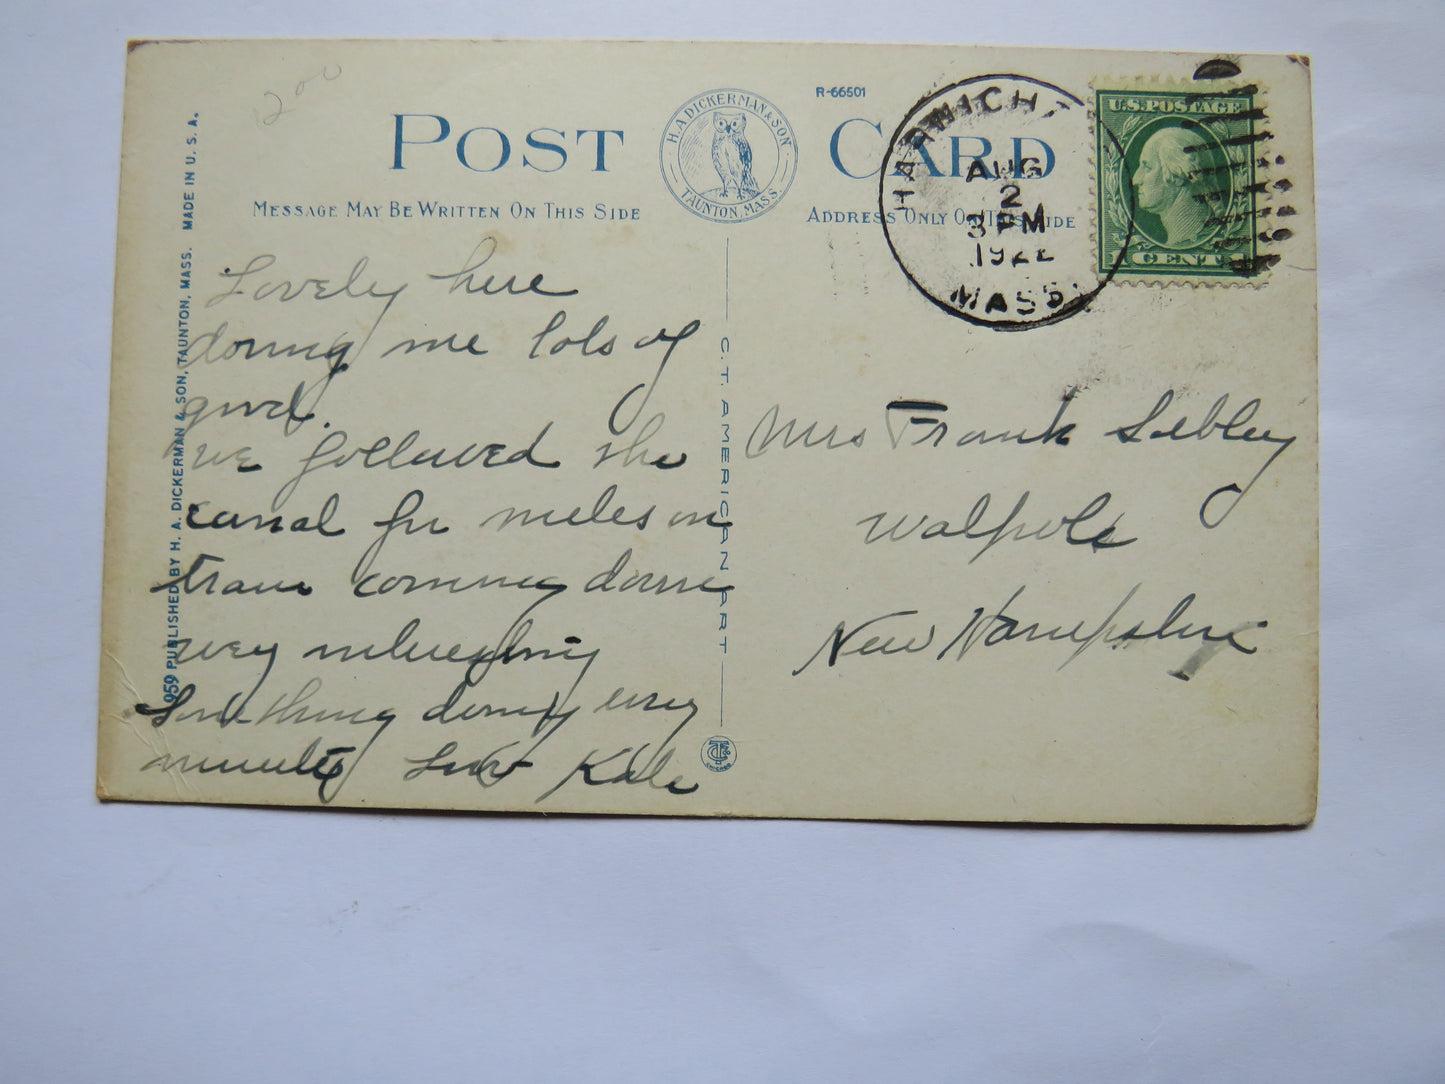 12 00
959 PUBLISHED BY H. A. DICKERMAN & SON, TAUNTON, MASS. MADE IN U. S. A.
POST CARD
H. A. DICKERMAN & SON
TAUNTON, MASS.
R-66501
MESSAGE MAY BE WRITTEN ON THIS SIDE
ADDRESS ONLY ON THIS SIDE
HARWICH
AUG
2
3 PM
1922
MASS.
U.S. POSTAGE
1 CENT
Lovely here
doing me lots of
good.
we followed the
canal for miles on
train coming down
very interesting
Something doing every
minute Love Kate
C. T. AMERICAN ART
CHICAGO
Mrs Frank Sibley
Walpole
New Hampshire